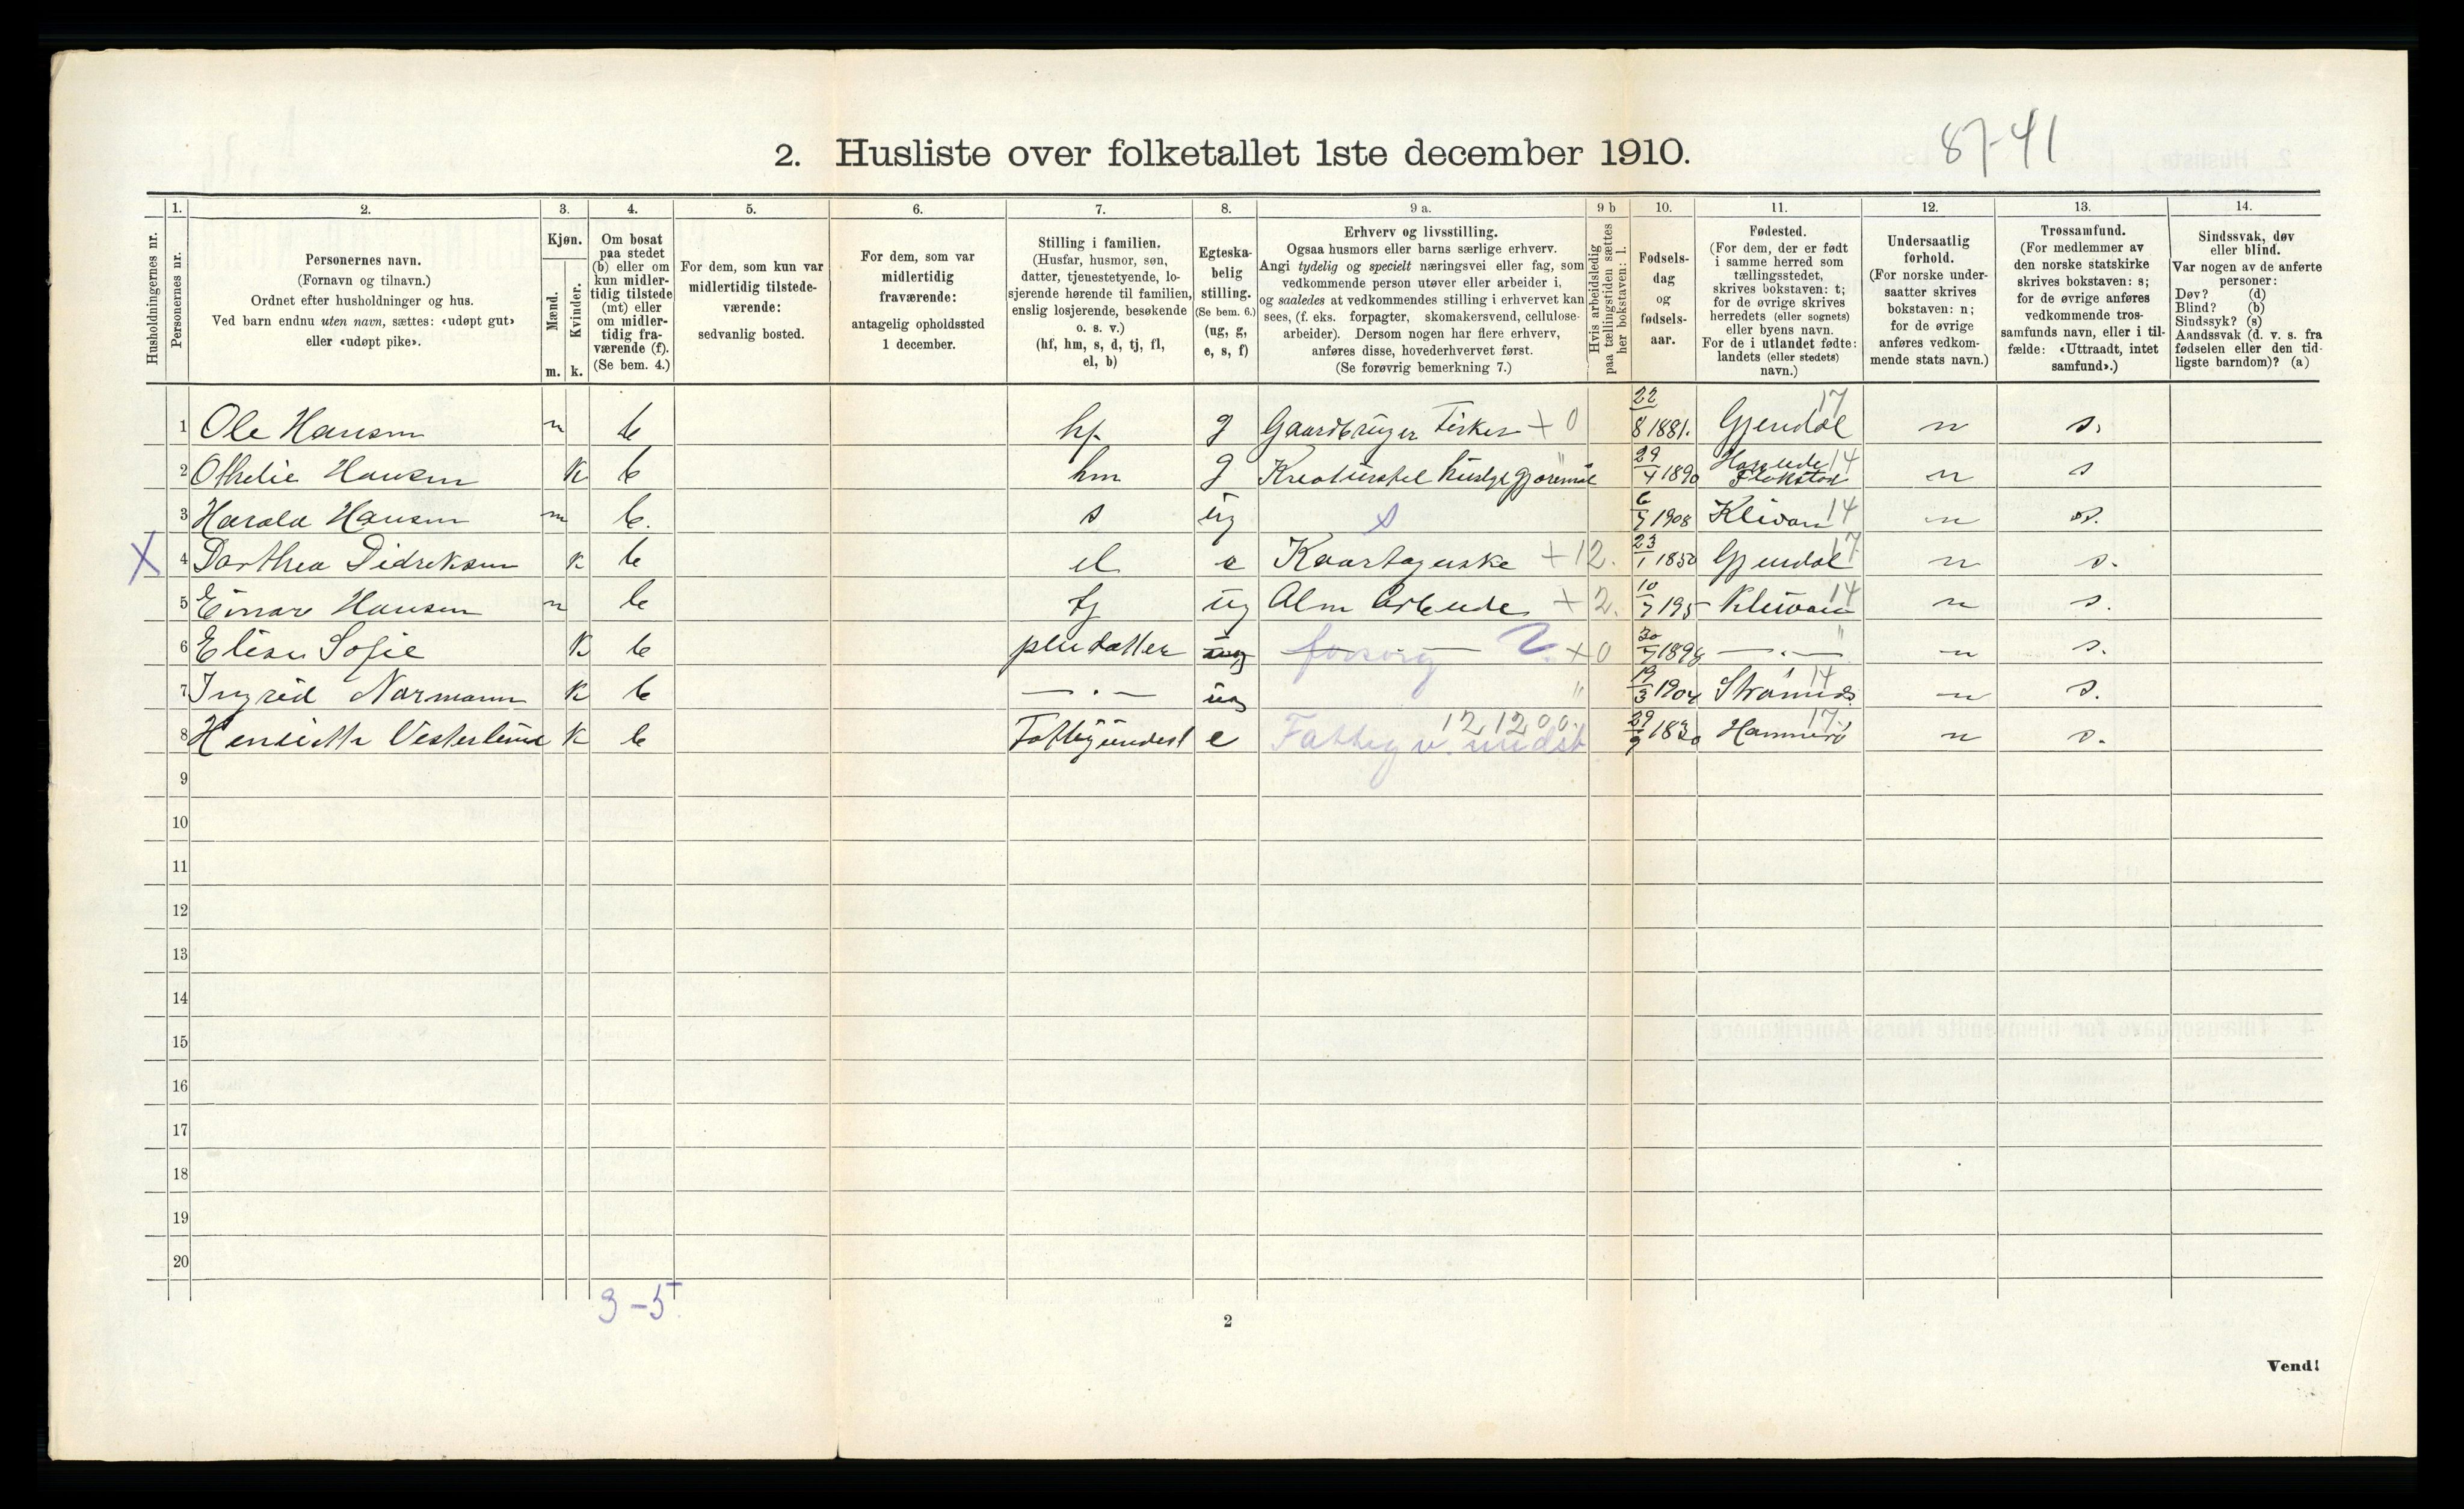 2. Husliste over folketallet 1ste december 1910.
87-41
Husholdningernes nr.
1.
Personernes nr.
2.
Personernes navn.
(Fornavn og tilnavn.)
Ordnet efter husholdninger og hus.
Ved barn endnu uten navn, sættes: «udøpt gut»
eller «udøpt pike».
3.
Kjøn.
Mænd.
Kvinder.
m. k.
4.
Om bosat
paa stedet
(b) eller om
kun midler-
tidig tilstede
(mt) eller
om midler-
tidig fra-
værende (f).
(Se bem. 4.)
5.
For dem, som kun var
midlertidig tilstede-
værende:
sedvanlig bosted.
6.
For dem, som var
midlertidig
fraværende:
antagelig opholdssted
1 december.
7.
Stilling i familien.
(Husfar, husmor, søn,
datter, tjenestetyende, lo-
sjerende hørende til familien,
enslig losjerende, besøkende
o. s. v.)
(hf, hm, s, d, tj, fl,
el, b)
8.
Egteska-
belig
stilling.
(Se bem. 6.)
(ug, g,
e, s, f)
9 a.
Erhverv og livsstilling.
Ogsaa husmors eller barns særlige erhverv.
Angi tydelig og specielt næringsvei eller fag, som
vedkommende person utøver eller arbeider i,
og saaledes at vedkommendes stilling i erhvervet kan
sees, (f. eks. forpagter, skomakersvend, cellulose-
arbeider). Dersom nogen har flere erhverv,
anføres disse, hovederhvervet først.
(Se forøvrig bemerkning 7.)
9 b
Hvis arbeidsledig
paa tællingstiden sættes
her bokstaven: l.
10.
Fødsels-
dag
og
fødsels-
aar.
11.
Fødested.
(For dem, der er født
i samme herred som
tællingsstedet,
skrives bokstaven: t;
for de øvrige skrives
herredets (eller sognets)
eller byens navn.
For de i utlandet fødte:
landets (eller stedets)
navn.)
12.
Undersaatlig
forhold.
(For norske under-
saatter skrives
bokstaven: n;
for de øvrige
anføres vedkom-
mende stats navn.)
13.
Trossamfund.
(For medlemmer av
den norske statskirke
skrives bokstaven: s;
for de øvrige anføres
vedkommende tros-
samfunds navn, eller i til-
fælde: «Uttraadt, intet
samfund».)
14.
Sindssvak, døv
eller blind.
Var nogen av de anførte
personer:
Døv? (d)
Blind? (b)
Sindssyk? (s)
Aandssvak (d. v. s. fra
fødselen eller den tid-
ligste barndom)? (a)
1 Ole Hansen m b hf g Gaardbruger Fisker + 0 22/8 1881. Gjendal 17 n s.
2 Othelie Hansen K b hm g Kreaturstel huslge gjøremål " 29/4 1890 14 n s
3 Harald Hansen m b. s ug s 6/7 1908 14 n s.
X 4 Dorthea Didreksen K b el e + 12. 23/1 1850 Gjendal 17 n s.
5 Einar Hansen m b tj ug Alm Arbeide + 2. 10/7 195 14 n s.
6 Elise Sofie K b pleidatter ug forsørg + 0 30/7 — . — " n s.
7 Ingrid Normann K b — . — ug " 19/3 1904 14 n s.
8 Henriette Vesterlund K b Fattigunderst e Fattig v. undst 12 1200. 29/9 1830 Hammerø 17 n s.
9
10
11
12
13
14
15
16
17
18
19
20
3 - 5
2
Vend!